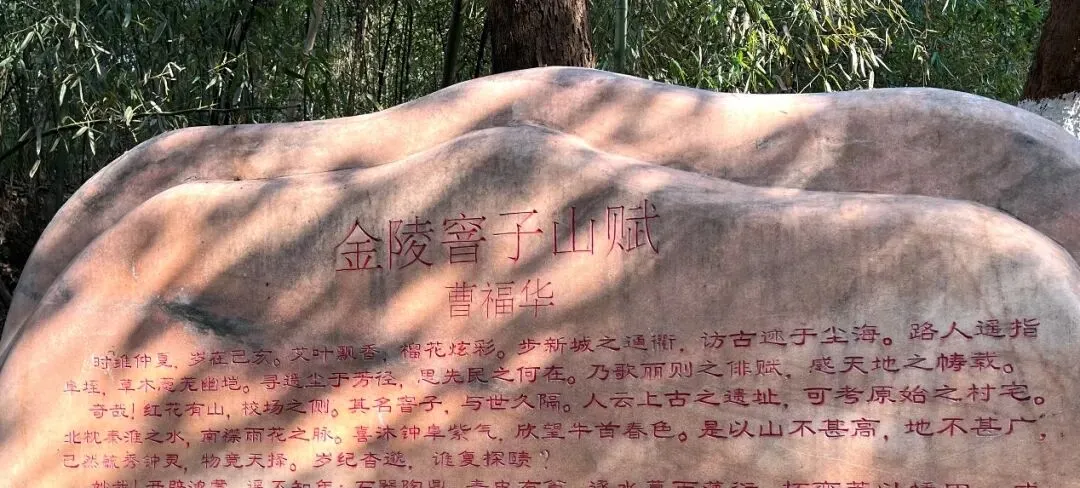 金陵窨子山赋
曹福华
时维仲夏，岁在己亥。艾叶飘香，榴花炫彩。步新城之通衢，访古迹于尘海。路人遥指
阜垤，草木葱茏幽垲。寻遗尘于芳径，思先民之何在。乃歌丽则之俳赋，感天地之帱载。
奇哉！红花有山，校场之侧。其名窨子，与世久隔。人云上古之遗址，可考原始之村宅。
北枕秦淮之水，南襟雨花之脉。喜沐钟阜紫气，欣望牛首春色。是以山不甚高，地不甚广，
已然毓秀钟灵，物竞天择。岁纪杳邈，谁复探赜？